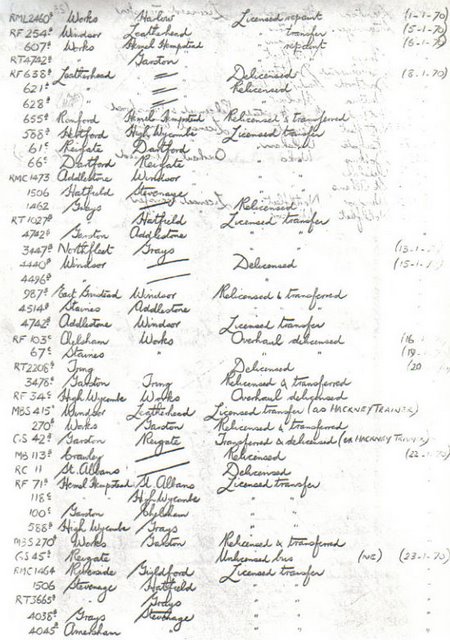 RML2460 Works Harlow Licensed repaint (1-1-70)
RF 254 Windsor Leatherhead " transfer (5-1-70)
607 Works Hemel Hempstead " repaint (6-1-70)
RT4742 " Garston "
RF 638 Leatherhead — Delicensed (8.1.70)
621 " — Relicensed
628 " — "
655 Romford Hemel Hempstead Relicensed & transferred
588 Hertford High Wycombe Licensed transfer
61 Reigate Dartford " "
66 Dartford Reigate " "
RMC1473 Addlestone Windsor " "
1506 Hatfield Stevenage " "
1462 Grays — Relicensed
RT 1027 " Hatfield Licensed transfer
4742 Garston Addlestone " "
3447 Northfleet Grays " " (13-1-
4440 Windsor — Delicensed (15-1-
4496 " — "
987 East Grinstead Windsor Relicensed & transferred
4514 Staines Addlestone " "
4742 Addlestone Windsor Licensed transfer
RF 103 Chelsham Works Overhaul delicensed (16
67 Staines " " (19
RT2206 Tring Delicensed (20
3478 Garston Tring Relicensed & transferred
RF 34 High Wycombe Works Overhaul delicensed
MBS 415 Windsor Leatherhead Licensed transfer (as HACKNEY TRAINER)
270 Works Garston Relicensed & transferred
GS 42 Garston Reigate Transferred & delicensed (ex HACKNEY TRAINER)
MB 113 Crawley — Relicensed (22-1-70)
RC 11 St. Albans — Delicensed
RF 71 Hemel Hempstead St. Albans Licensed transfer
118 " High Wycombe " "
100 Garston Chelsham " "
588 High Wycombe Grays " "
MBS 270 Works Garston Relicensed & transferred
GS 45 Reigate Unlicensed bus (NE) (23-1-70)
RMC1464 Riverside Guildford Licensed transfer
1506 Stevenage Hatfield " "
RT3665 " Grays " "
4038 Grays Stevenage " "
4045 Amersham " " "